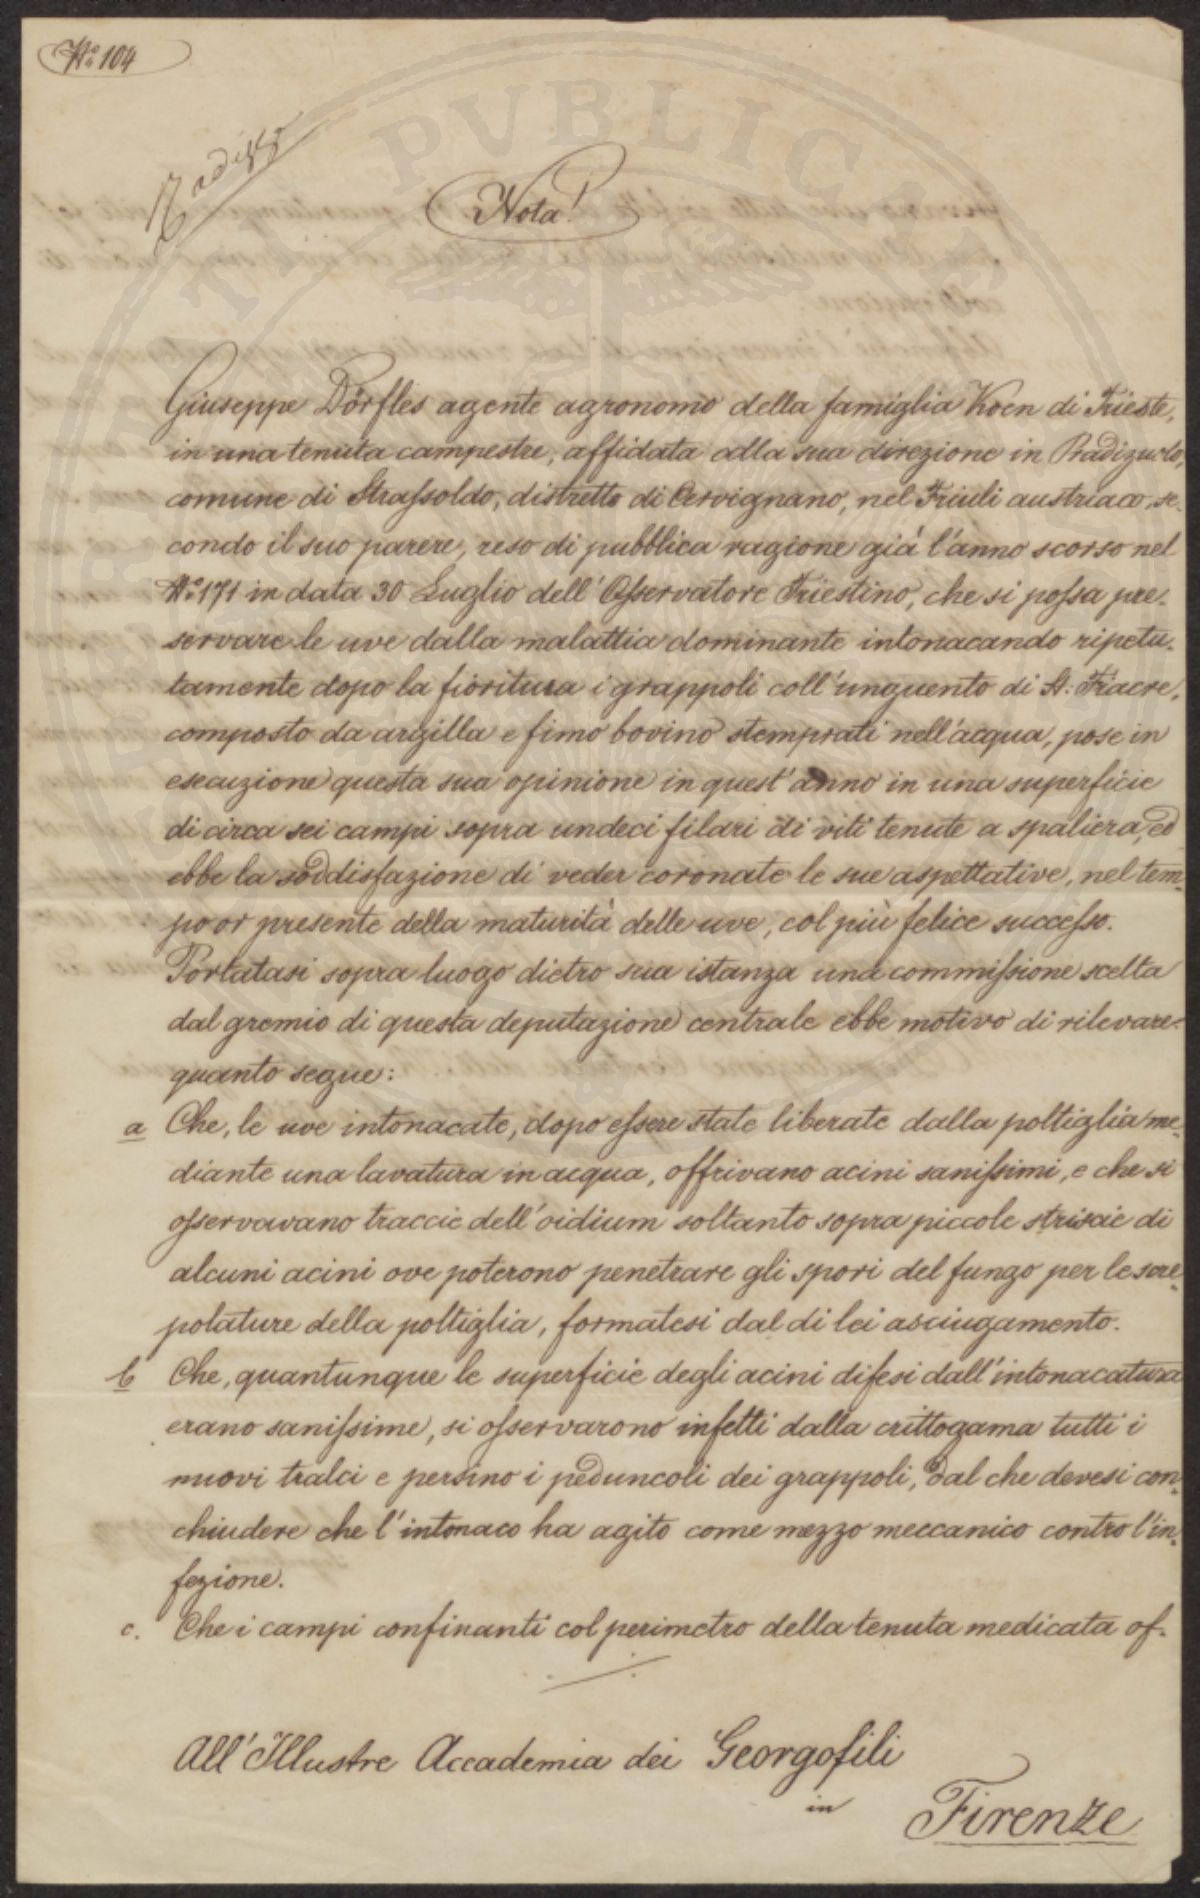 No: 104
Nota!
Giuseppe Dörfles agente agronomo della famiglia Koen di Trieste,
in una tenuta campestre, affidata alla sua direzione in Radizuolo,
comune di Strassoldo, distretto di Cervignano, nel Friuli austriaco, se-
condo il suo parere, reso di pubblica ragione già l'anno scorso nel
No: 171 in data 30 Luglio dell'Osservatore Triestino, che si possa pre-
servare le uve dalla malattia dominante intonacando ripetu-
tamente dopo la fioritura i grappoli coll'unguento di St: Fiacre,
composto da argilla e fimo bovino stemprati nell'acqua, pose in
esecuzione questa sua opinione in quest'anno in una superficie
di circa sei campi sopra undeci filari di viti tenute a spaliera, ed
ebbe la soddisfazione di veder coronate le sue aspettative, nel tem-
po or presente della maturità delle uve, col più felice successo.
Portatasi sopra luogo dietro sua istanza una commissione scelta
dal gremio di questa deputazione centrale ebbe motivo di rilevare
quanto segue:
a Che, le uve intonacate, dopo essere state liberate dalla poltiglia me-
diante una lavatura in acqua, offrivano acini sanissimi, e che si
osservavano traccie dell'oidium soltanto sopra piccole striscie di
alcuni acini ove poterono penetrare gli spori del fungo per le scre-
polature della poltiglia, formatesi dal di lei asciugamento.
b Che, quantunque le superficie degli acini difesi dall'intonacatura
erano sanissime, si osservarono infetti dalla crittogama tutti i
nuovi tralci e persino i peduncoli dei grappoli, dal che devesi con-
chiudere che l'intonaco ha agito come mezzo meccanico contro l'in-
fezione.
c. Che i campi confinanti col perimetro della tenuta medicata of-
All'Illustre Accademia dei Georgofili
in
Firenze